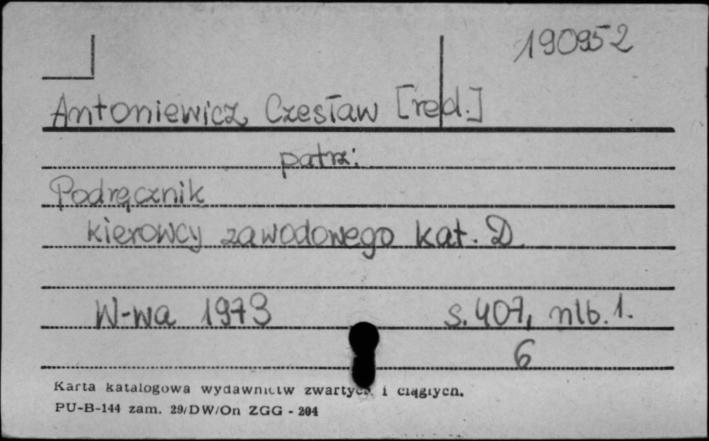 190952
Antoniewicz, Czesław [red.]
patrz:
Podręcznik
kierowcy zawodowego kat. D
W-wa 1973 s. 407, nlb. 1.
6
Karta katalogowa wydawnictw zwartych i ciągłych.
PU-B-144 zam. 29/DW/On ZGG - 204